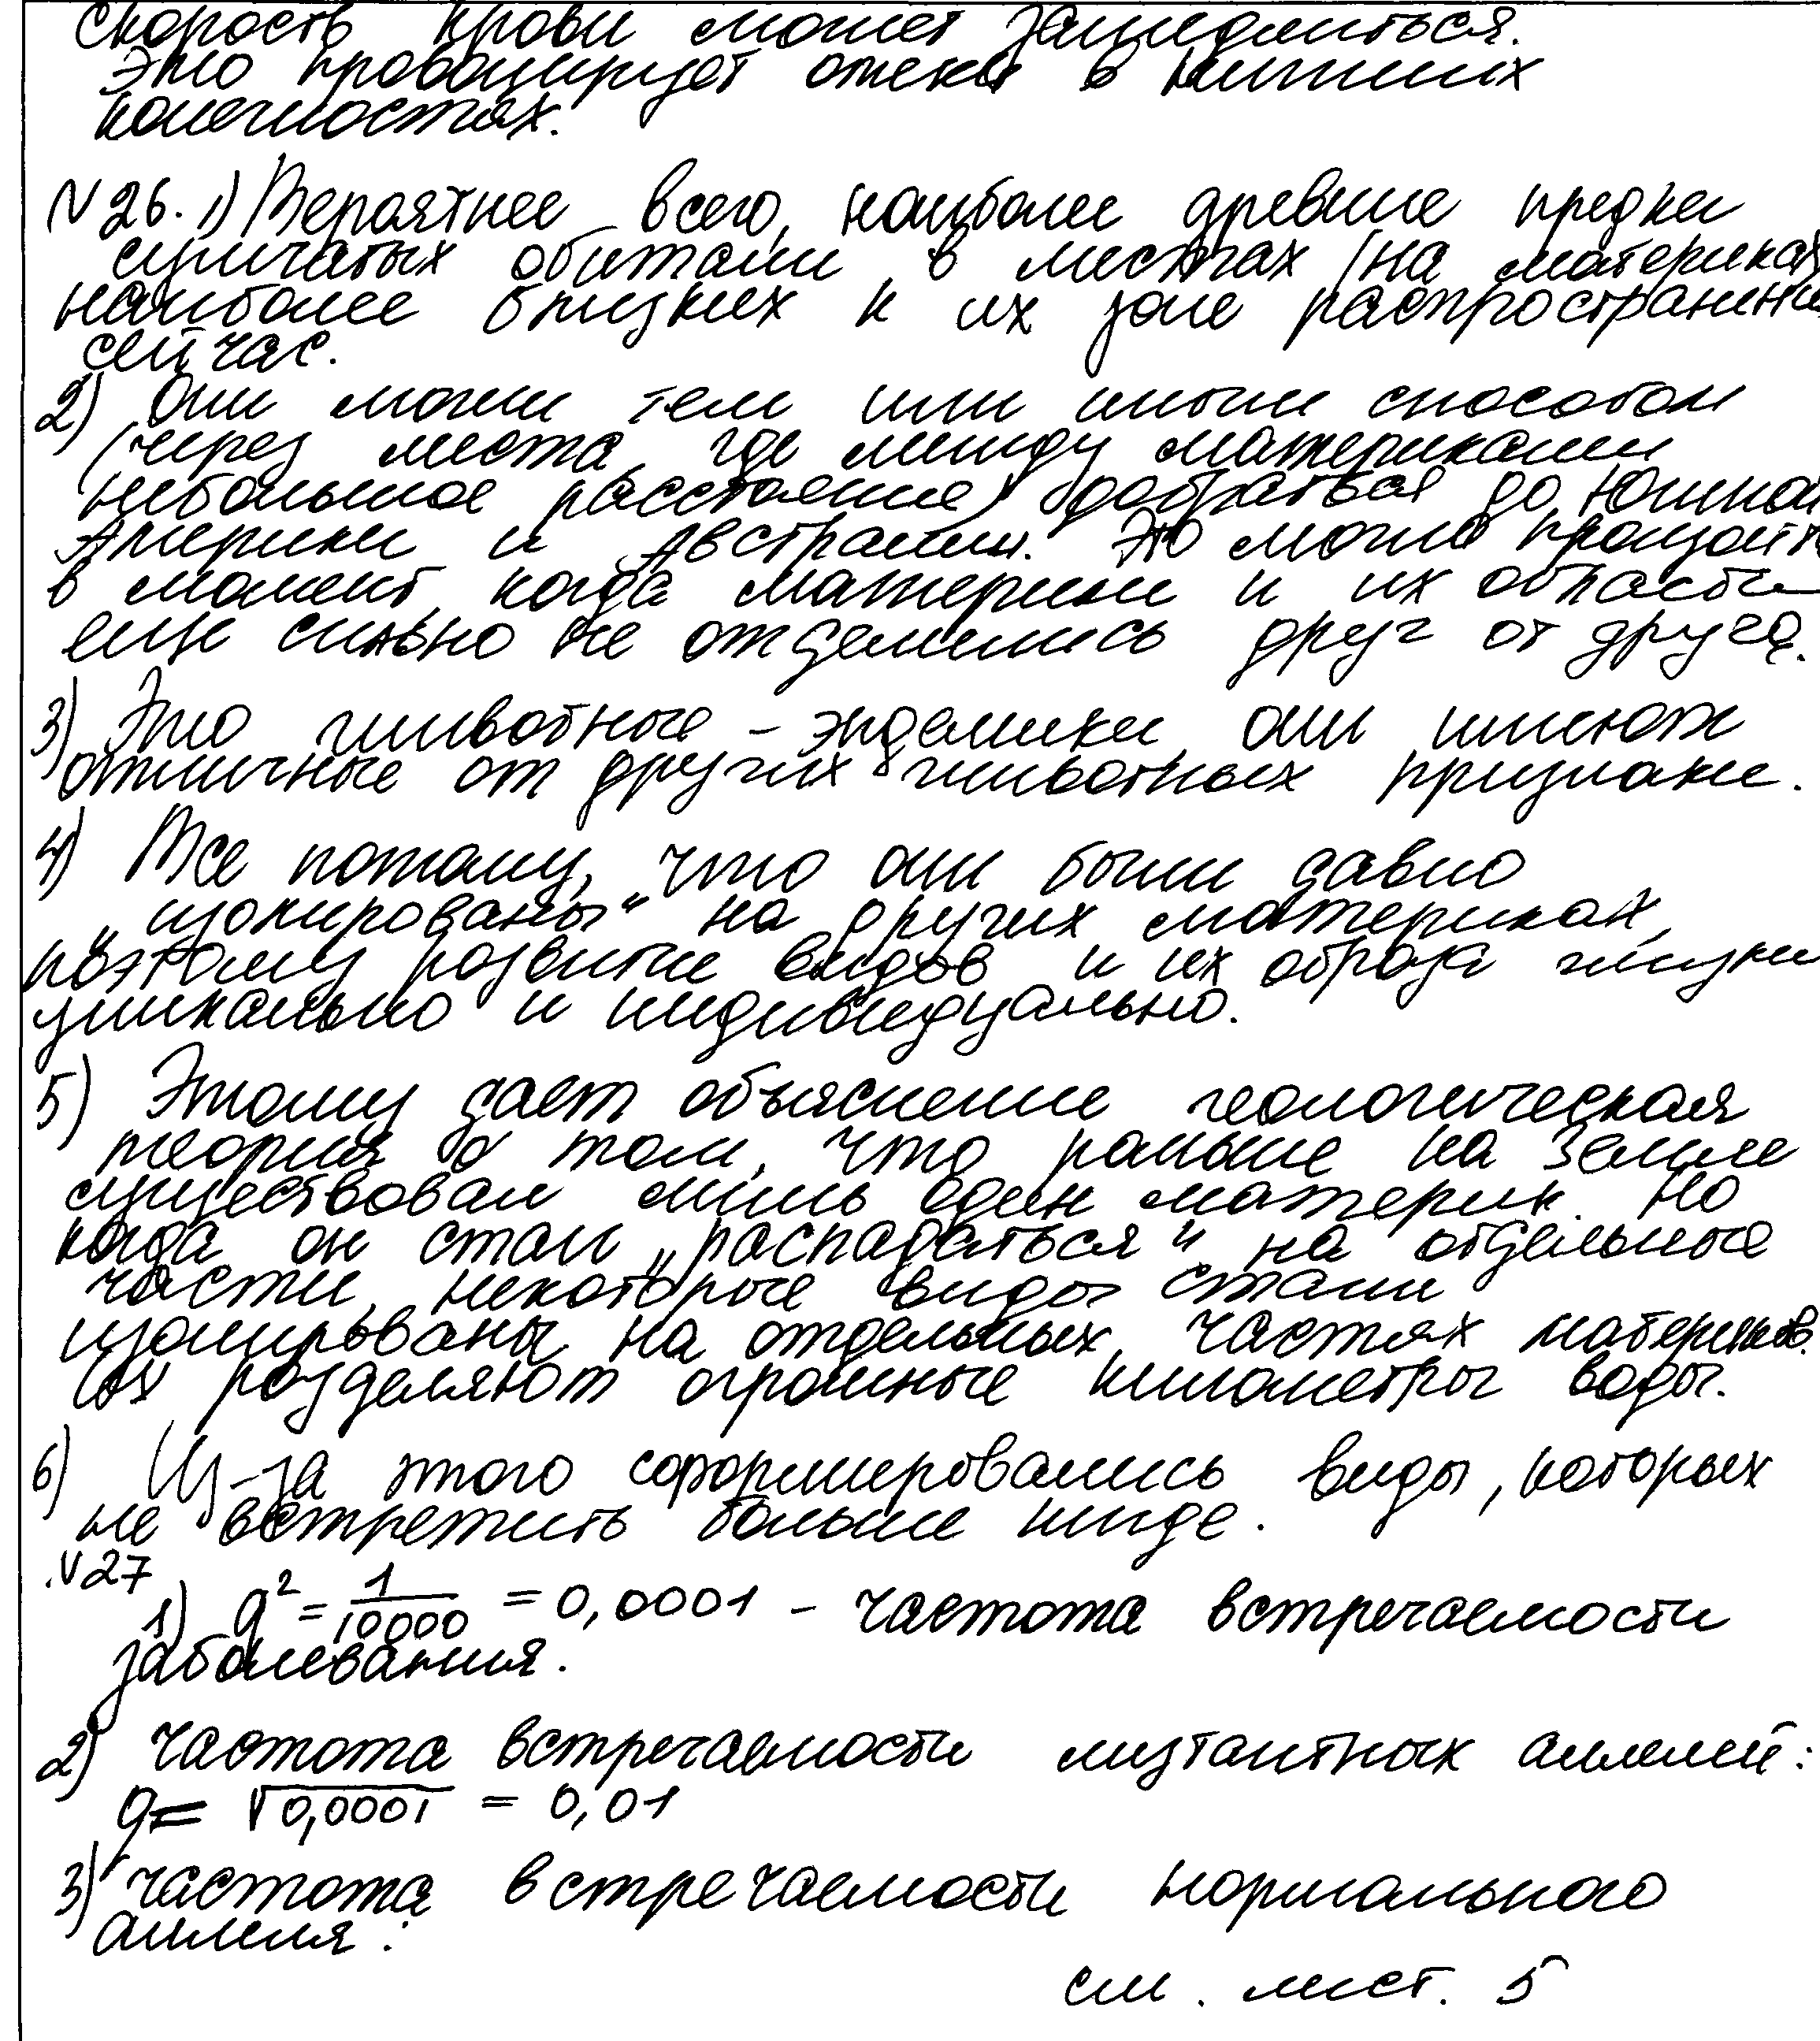 скорость крови может замедлиться.
Это провоцирует отеки в нижних
конечностях.
N26. 1) Вероятнее всего, наиболее древние предки
сумчатых обитали в местах (на материках)
наиболее близких к их зоне распространения
сейчас.
2) Они могли тем или иным способом
(через места, где между материками
небольшое расстояние) добраться до Южной
Америки и Австралии. Это могло произойти
в момент, когда материки и их области
еще сильно не отделились друг от друга.
3) Это животные - эндемики, они имеют
отличные от других животных признаки.
4) Все потому, что они были давно
„изолированы" на других материках,
поэтому развитие видов и их образа жизни
уникально и индивидуально.
5) Этому дает объяснение геологическая
теория о том, что раньше на Земле
существовал лишь один материк. Но
когда он стал „распадаться" на отдельные
части, некоторые виды стали
изолированы на отдельных частях материков.
Их разделяют огромные километры воды.
6) Из-за этого сформировались виды, которых
не встретить больше нигде.
N27
1) q² = 1/10000 = 0,0001 - частота встречаемости
заболевания.
2) частота встречаемости мутантных аллелей:
q = √0,0001 = 0,01
3) частота встречаемости нормального
аллеля:
см. лист. 5